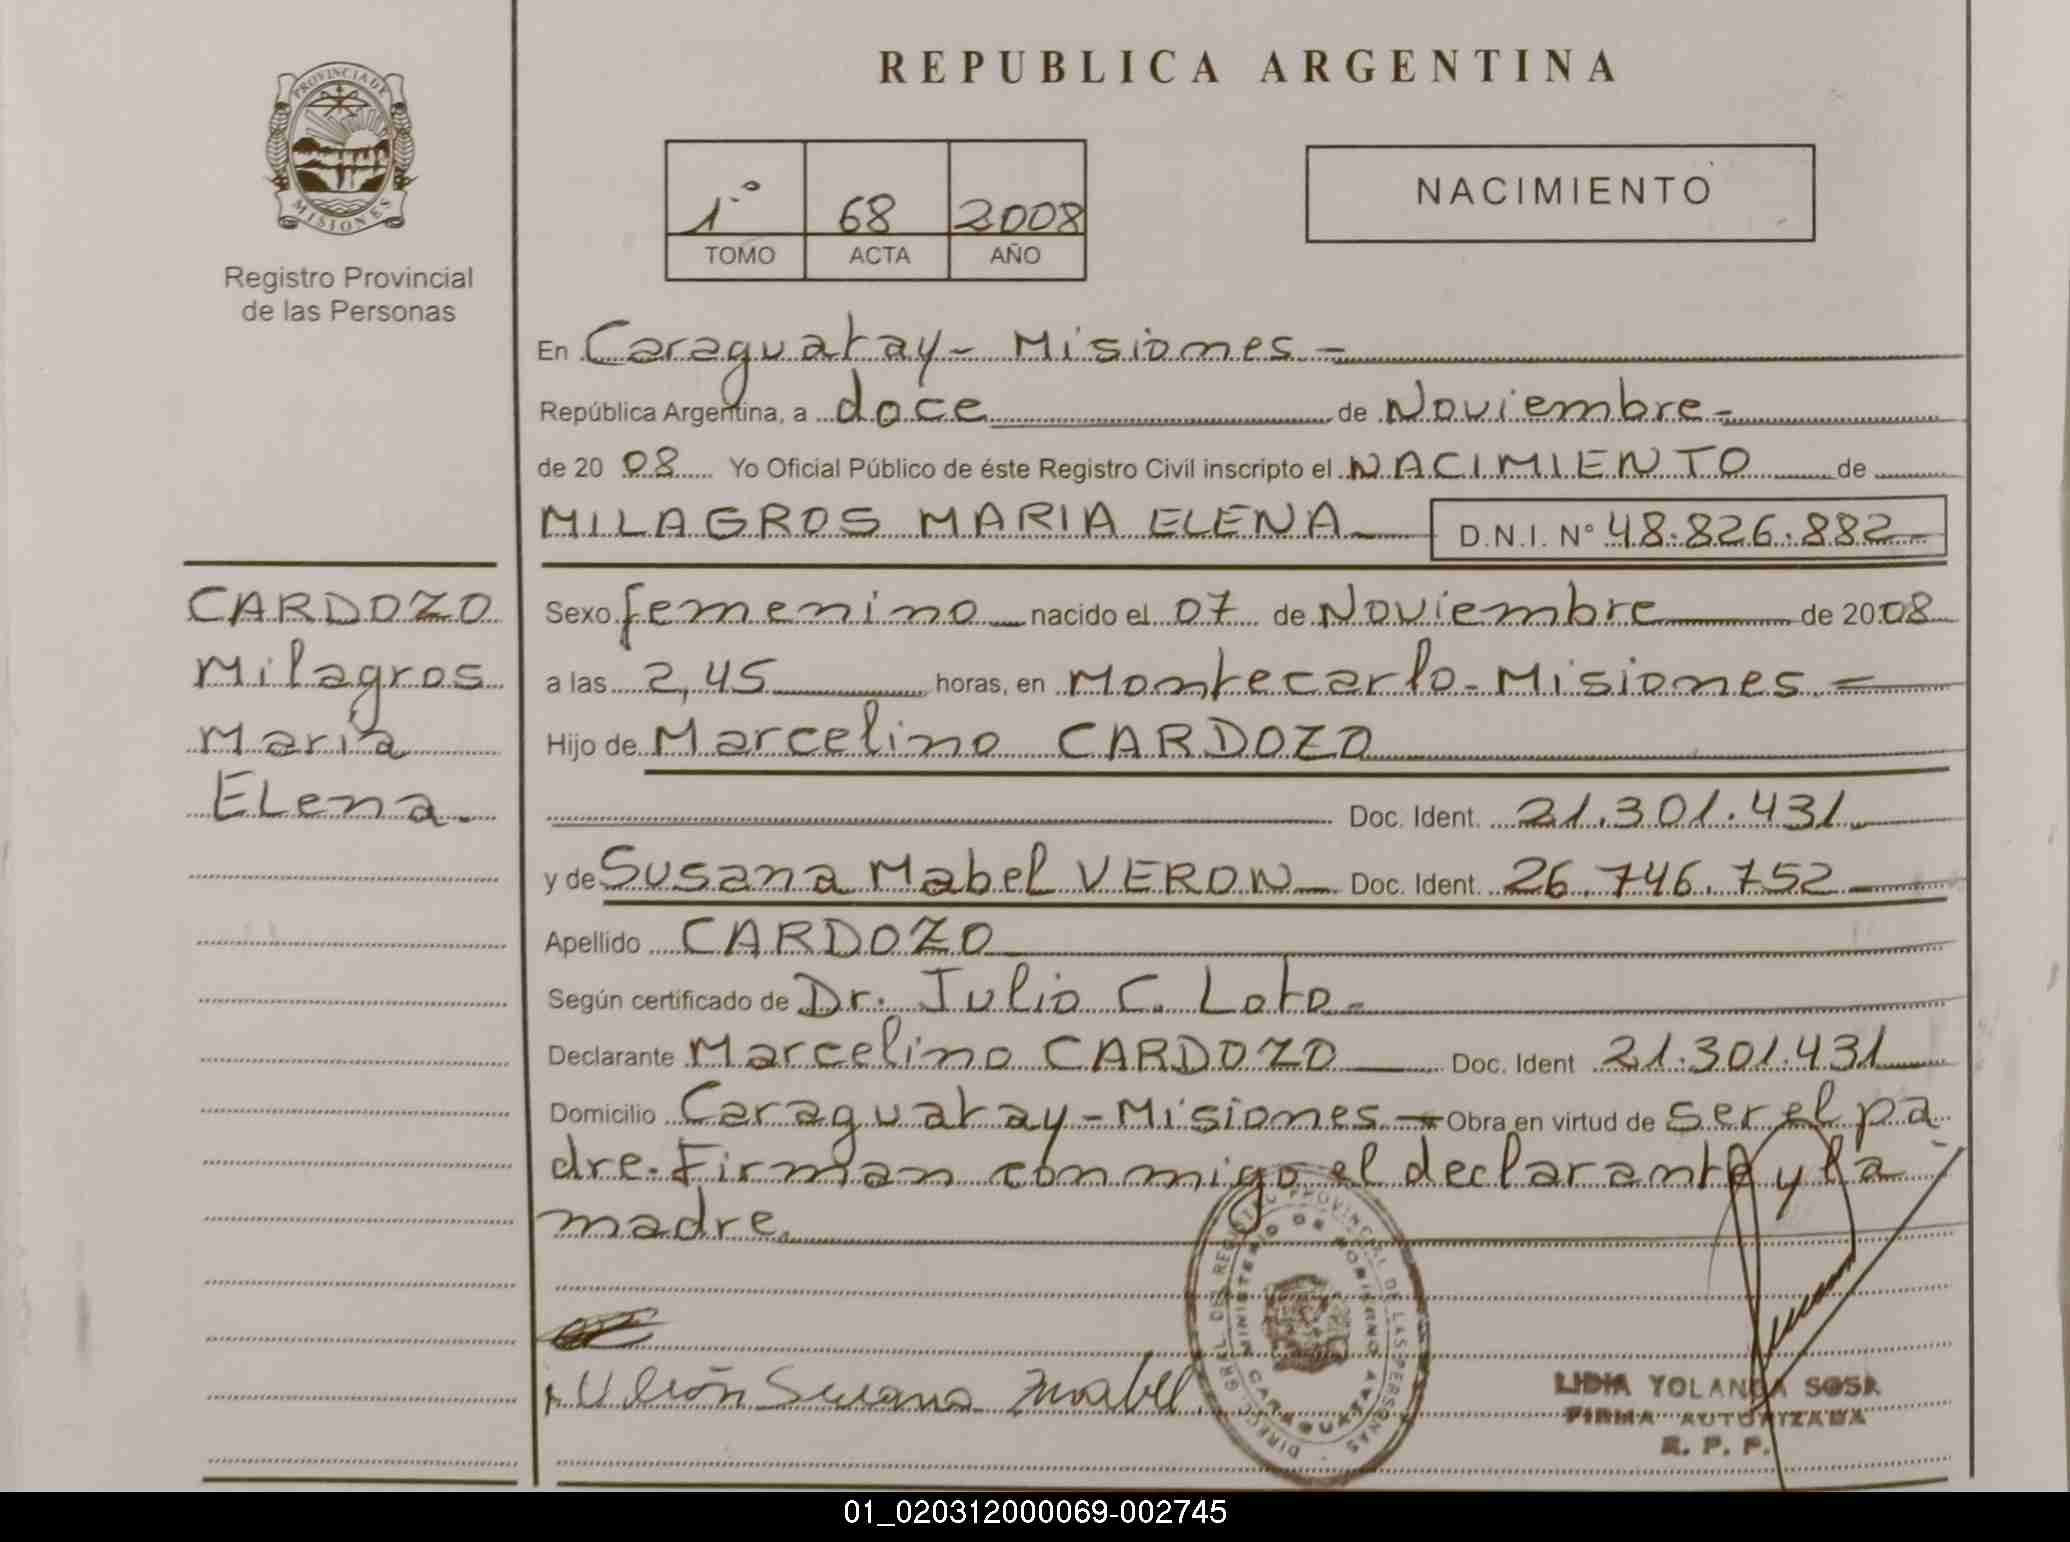 REPUBLICA ARGENTINA
PROVINCIA DE
MISIONES
Registro Provincial
de las Personas
1º 68 2008
TOMO ACTA AÑO
NACIMIENTO
En Caraguatay - Misiones.-
República Argentina, a doce de Noviembre-
de 20 08 Yo Oficial Público de éste Registro Civil inscripto el NACIMIENTO de
MILAGROS MARIA ELENA D.N.I. Nº 48.826.882-
CARDOZO
Milagros
María
Elena.
Sexo femenino nacido el 07 de Noviembre de 20 08
a las 2,45 horas, en Montecarlo-Misiones.-
Hijo de Marcelino CARDOZO
Doc. Ident. 21.301.431.
y de Susana Mabel VERON Doc. Ident. 26.746.752-
Apellido CARDOZO
Según certificado de Dr. Julio C. Loto-
Declarante Marcelino CARDOZO Doc. Ident 21.301.431
Domicilio Caraguatay-Misiones- Obra en virtud de ser el pa
dre. Firman conmigo el declarante y la
madre.
DIREC. GRAL. DE REGISTRO PROVINCIAL DE LAS PERSONAS
MINISTERIO DE GOBIERNO
CARAGUATAY
Verón Susana Mabel
LIDIA YOLANDA SOSA
FIRMA AUTORIZADA
R. P. P.
01_020312000069-002745